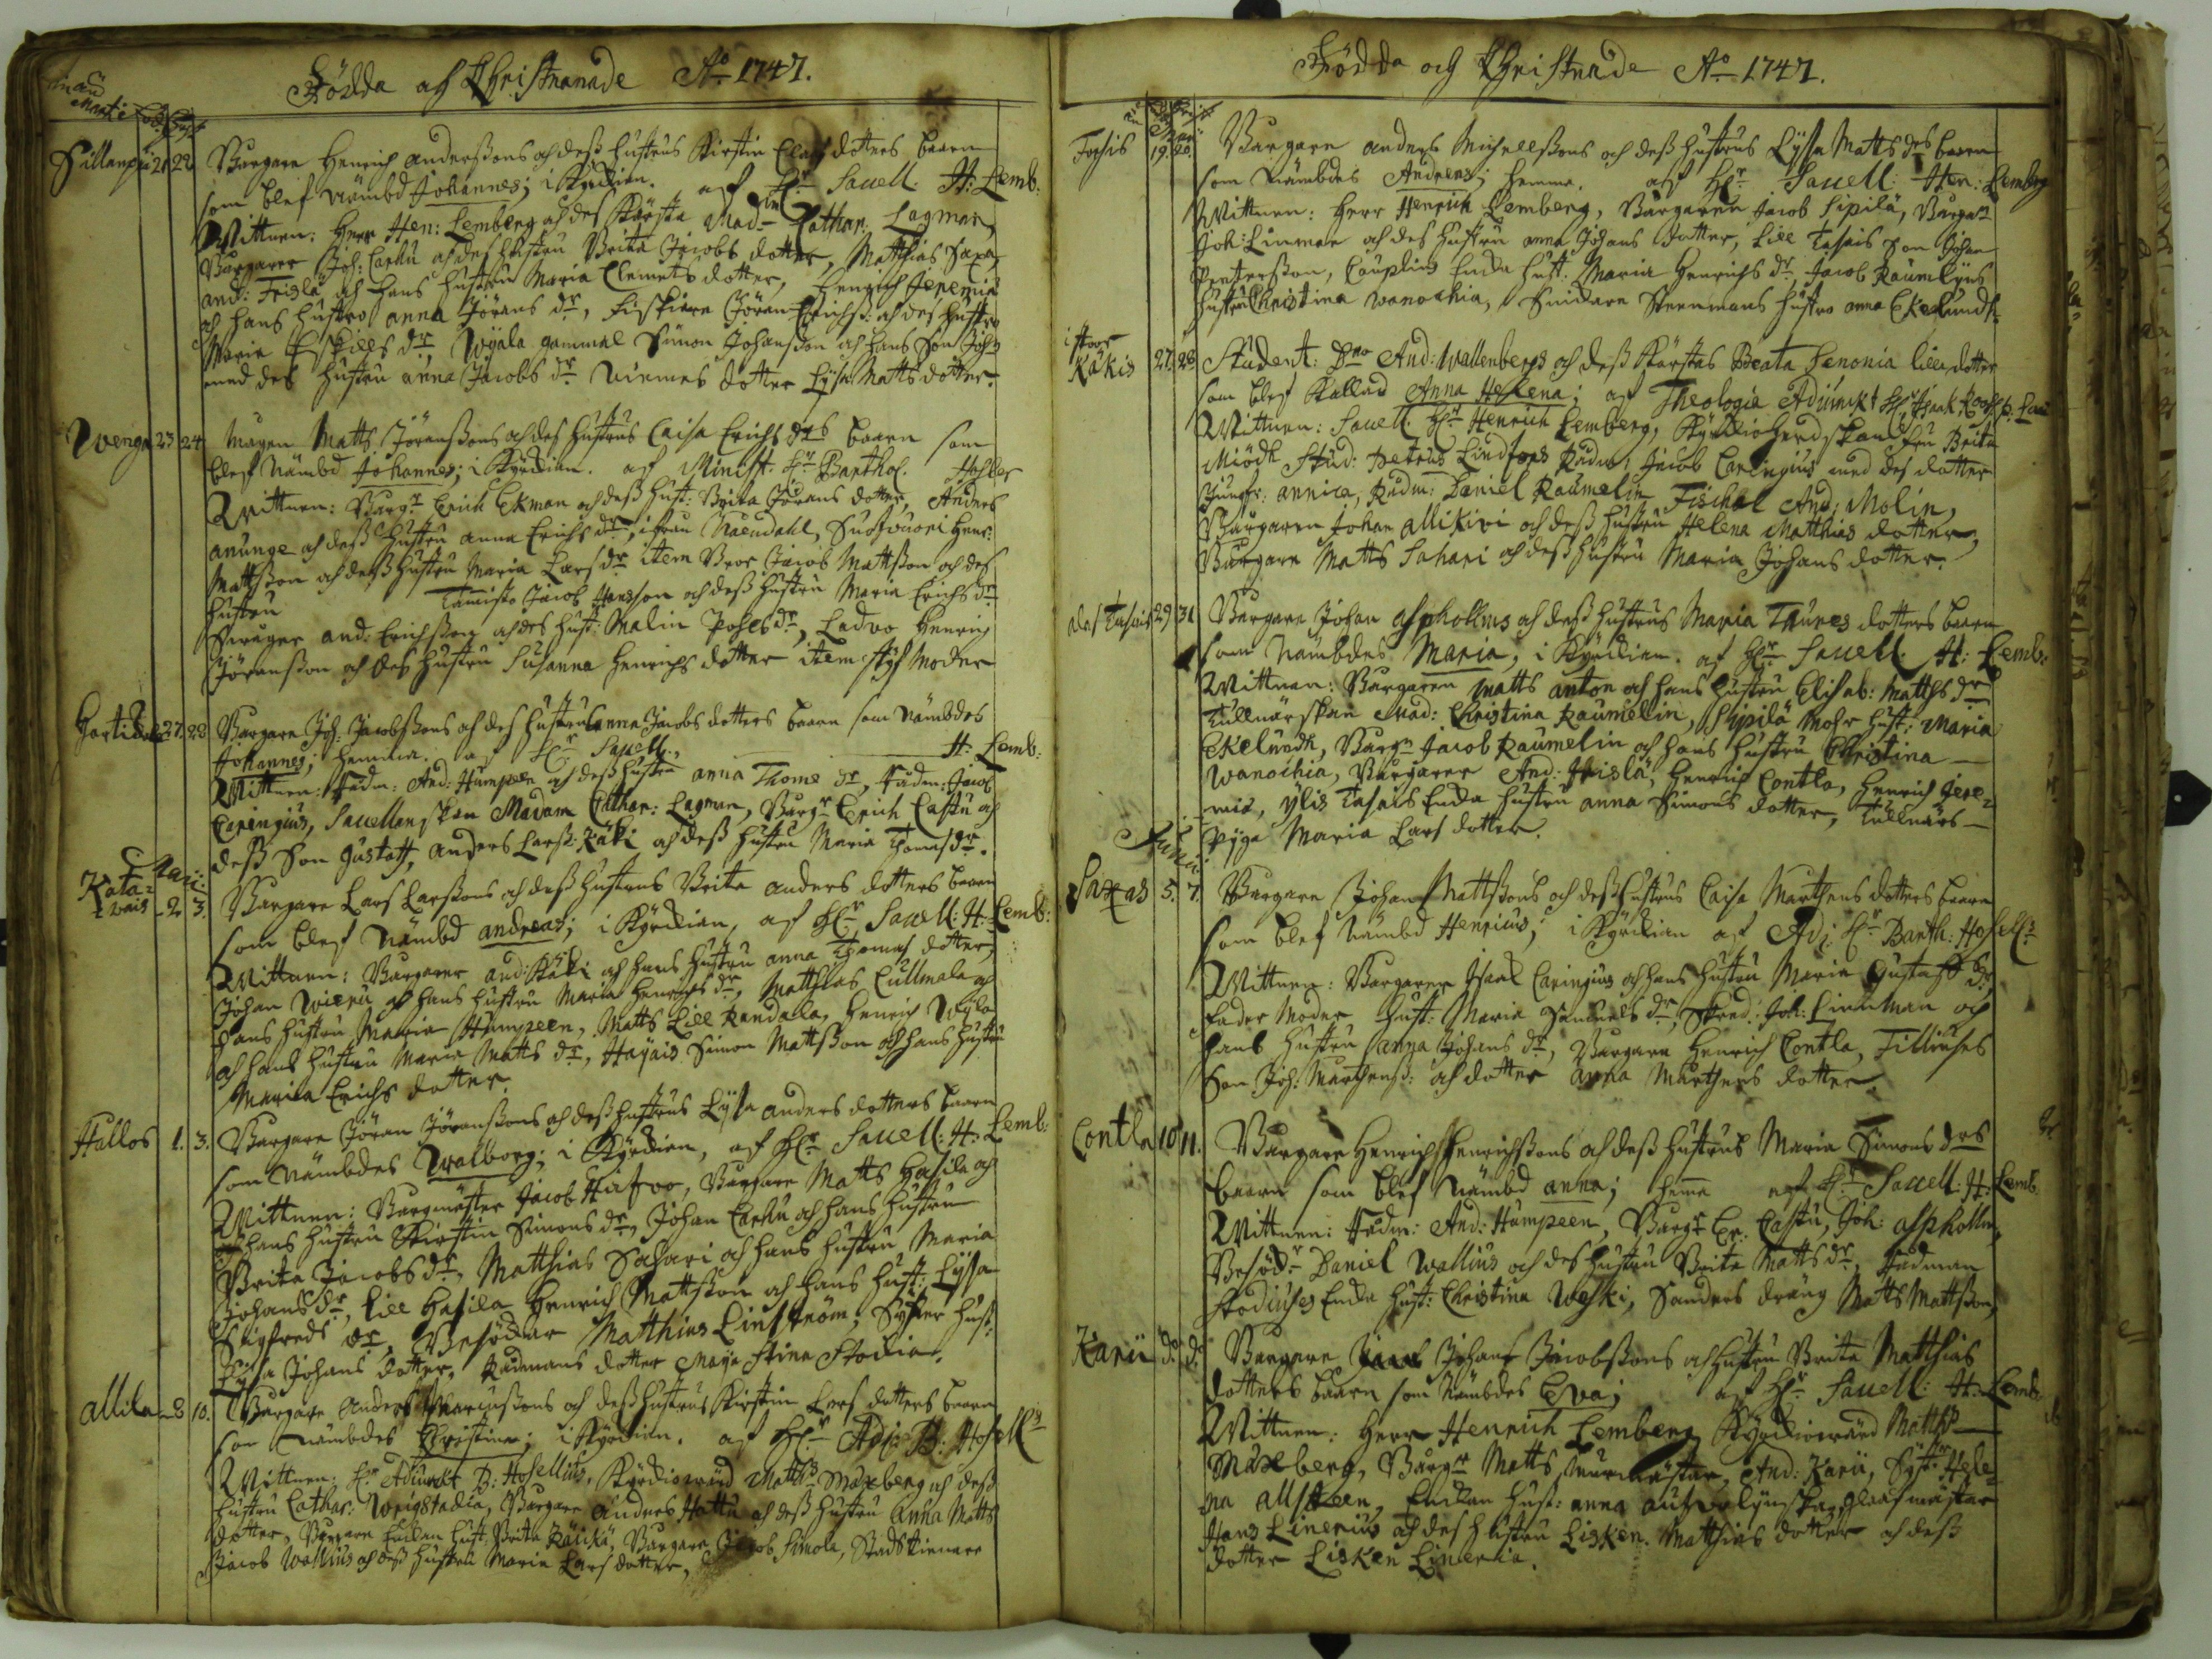 Födda och Christnanade Aō 1747.
Martii
Sillanpä 21 22 Borgaren Henrich anderssons och dess hustrus Kirstin Elias dotters baarn
som blef nämbd Johannes; i Kyrckian. af Hr Sacell: H: Lemb:
Wittnen: Herr Hen: Lemberg och des Kärsta Mad: Cathar: Lagman,
Borgaren Joh: Carhu och des hustru Brita Jacobs dotter, Matthias Saxa,
and: Frislä och hans hustru Maria Clemets dotter, Henrich Jeremia
och hans hustro anna Jörans dr, Fiskiare Jöran Erichs: och des hustro
Maria Eskills dr, Wÿala gammal Simon Johansson och hans Son Joh:
med des hustru anna Jacobs dr Niemes dotter Lÿsa Matts dotter.
Wenga 23 24 Matts Jöranssons och des hustrus Caisa Erichs drs baarn som
blef Nämbd Johannes; i Kyrckian. af Minist. Hr Barthol.
Wittnen: Borgr Erich Ekman och dess hust: Brita Jörans dotter, Anders
anunge och dess hustru anna Erichs dr, ifrån Naendahl, Henr:
Mattsson och dess hustru Maria Lars dr item Bror Jacob Mattsson och des
hustru Tamisto Jacob Hansson och dess hustru Maria Erichs dr
and: Erichsson och des hust: Malin dr, Ledvo Henrich
Jöransson och des hustru Susanna Henrichs dotter item Moder
27 28 Borgaren Joh: Jacobssons och des hustrus anna Jacobs dotters baarn som Nämbdes
Johannes; hemma. af Hr Sacell. H: Lemb:
Wittnen: Rådm: And: Humpeen och dess hustru anna Thoms dr, Rådm: Jacob
Caringius, Sacellanskan Madam Cathar: Lagman, Borgr Erich Castu och
dess Son Gustaff, anders Larss: Käki och dess hustru Maria Thomsdr.
Maii:
2 3. Borgaren Lars Larssons och dess hustrus Brita anders dotters baarn
som blef Nämbd andreas; i Kyrckian, af Hr Sacell: H: Lemb:
Wittnen: Borgaren and: Käki och hans hustru anna Thomas dotter,
Johan Wieru och hans hustru Maria Henrichs dr, Matthias Cullmala och
hans hustru Maria Humpeen, Matts Lill Randala, Henrich Wÿla
och hans hustru Maria Matts dr, Hayais Simon Mattsson och hans hustru
Maria Erichs dotter.
Hallos 1. 3. Borgaren Jöran Jöranssons och dess hustrus Lÿsa anders dotters baarn
som nämbdes Walborg; i Kyrckian, af Hr Sacell: H: Lemb:
Wittnen: Borgmäster Jacob Haftoo, Borgare Matts Hasila och
hans hustru Kirstin Simons dr, Johan Carhu och hans hustru
Brita Jacobs dr, Matthias Sahari och hans hustru Maria
Johans dr, Lill Hasila Henrich Mattsson och hans hust: Lÿsa
Sigfreds dr, Besökar Matthias Linström, Syster hust:
Lÿsa Johans dotter, Rådmans dotter Maÿa Stina Stodia.
Allila 8 10. Borgare Anders Marcussons och dess hustrus Kirstin Lars dotters baarn
som Nämbdes Christina; i Kyrckian. af Hr Adj: B: Hosell:
Wittnen: Hr Adiunct B: Hosellius, Kyrckiowärd Matths Maxberg och dess
hustru Cathar: Wrigstadia, Borgare Andres Hattu och dess hustru Anna Matts
dotter, Borgare Enckan hust: Brita Räiikä, Borgare Jacob Simola, Stadstienare
Jacob Wallius och dess hustru Maria Lars dotter,
Födda och Christnade Aō 1747.
Maii
19. 20. Borgaren anders Michellssons och dess hustrus Lÿsa Matts drs baarn
som Nämbdes Andreas; hemma. af Hr Sacell: Hen: Lemberg
Wittnen: Herr Henrich Lemberg, Borgaren Jacob Sipilä, Borgar:
Joh: Linman och des hustru anna Johans dotter, Lill Tasais Son Johan
Pettersson, Enda hust: Maria Henrichs dr, Jacob Raumelins
hustru Christina Wanochia, Snidare Steenmans hustro anna Ekelundh.
i stoor
Käkis 27. 28. Student: Dno And: Wallenbergs och dess Kärstas Beata Lenonia lilla dotter
som blef Kallad Anna Helena; af Theologiæ Adiunckt Hr Isaak
Wittnen: Sacell. Hr Henrich Lemberg, Kyrckioherdskan fru Brita
Miödh Stud: Petrus Lindfors Rådm: Jacob Caringius med des dotter
Jungfr: annica, Rådm: Daniel Raumelin Fischal And: Molin,
Borgaren Johan Allikivi och dess hustru Helena Matthias dotter,
Borgare Matts Sahari och dess hustru Maria Johans dotter.
Tasais 29 31 Borgare Johan aspholms och dess hustrus Maria Thures dotters baarn
som Nämbdes Maria; i Kyrckian. af Hr Sacell. H: Lemb:
Wittnen: Borgaren Matts anton och hans hustru Elisab: Matths dr
Tullnärskan Mad: Christina Raumelin, Sipilä Mohr hust: Maria
Ekelundh, Borgr Jacob Raumelin och hans hustru Christina
Wanochia, Borgaren And: Frislä, Henrich Contla, Henrich Jere-
mia, ÿlis Tasais Enda hustru anna Simons dotter, Tullnärs
Pÿga Maria Lars dotter.
Junii
Saxas 5. 7. Borgare Johan Mattssons och dess hustrus Caisa Marthens dotters baarn
som blef Nämbd Henricus; i Kyrckian af Adj. Hr Barth: Hosell:
Wittnen: Borgaren Isaak Caringius och hans hustru Maria Gustafs dr,
Fader Moder hust: Maria Samuels dr, Skred: Joh: Linnman och
hans hustru anna Johans dr, Borgare Henrich Contla,
Son Joh: Marthenss: och dotter anna Marthens dotter.
Contla 10 11. Borgare Henrich Henrichssons och dess hustrus Maria Simons drs
baarn som blef Nämbd anna; hema af Hr Sacell. H: Lemb.
Wittnen: Rådm: And: Humpeen, Borgr Er: Castu, Joh: aspholm,
Besöd: Daniel Wallius och des hustru Brita Matts dr, Rådman
Stodiuses Enda hust: Christina Weski, Sanders dräng Matts Mattsson,
Karii do. do. Borgare Johans Jacobssons och hustru Brita Matthias
dotters baarn som Nämbdes Eva; af Hr Sacell: H: Lemb:
Wittnen: Herr Henrich Lemberg Kyrckiowärd Matths
Maxberg, Borgr Matts Murmästar, And: Karii, Syst: Hele-
na Allsteen, Enckan hust: anna glaasmästar
Hans Linerius och des hustru Lisken Matthias dotter och dess
dotter Lisken Lineria.